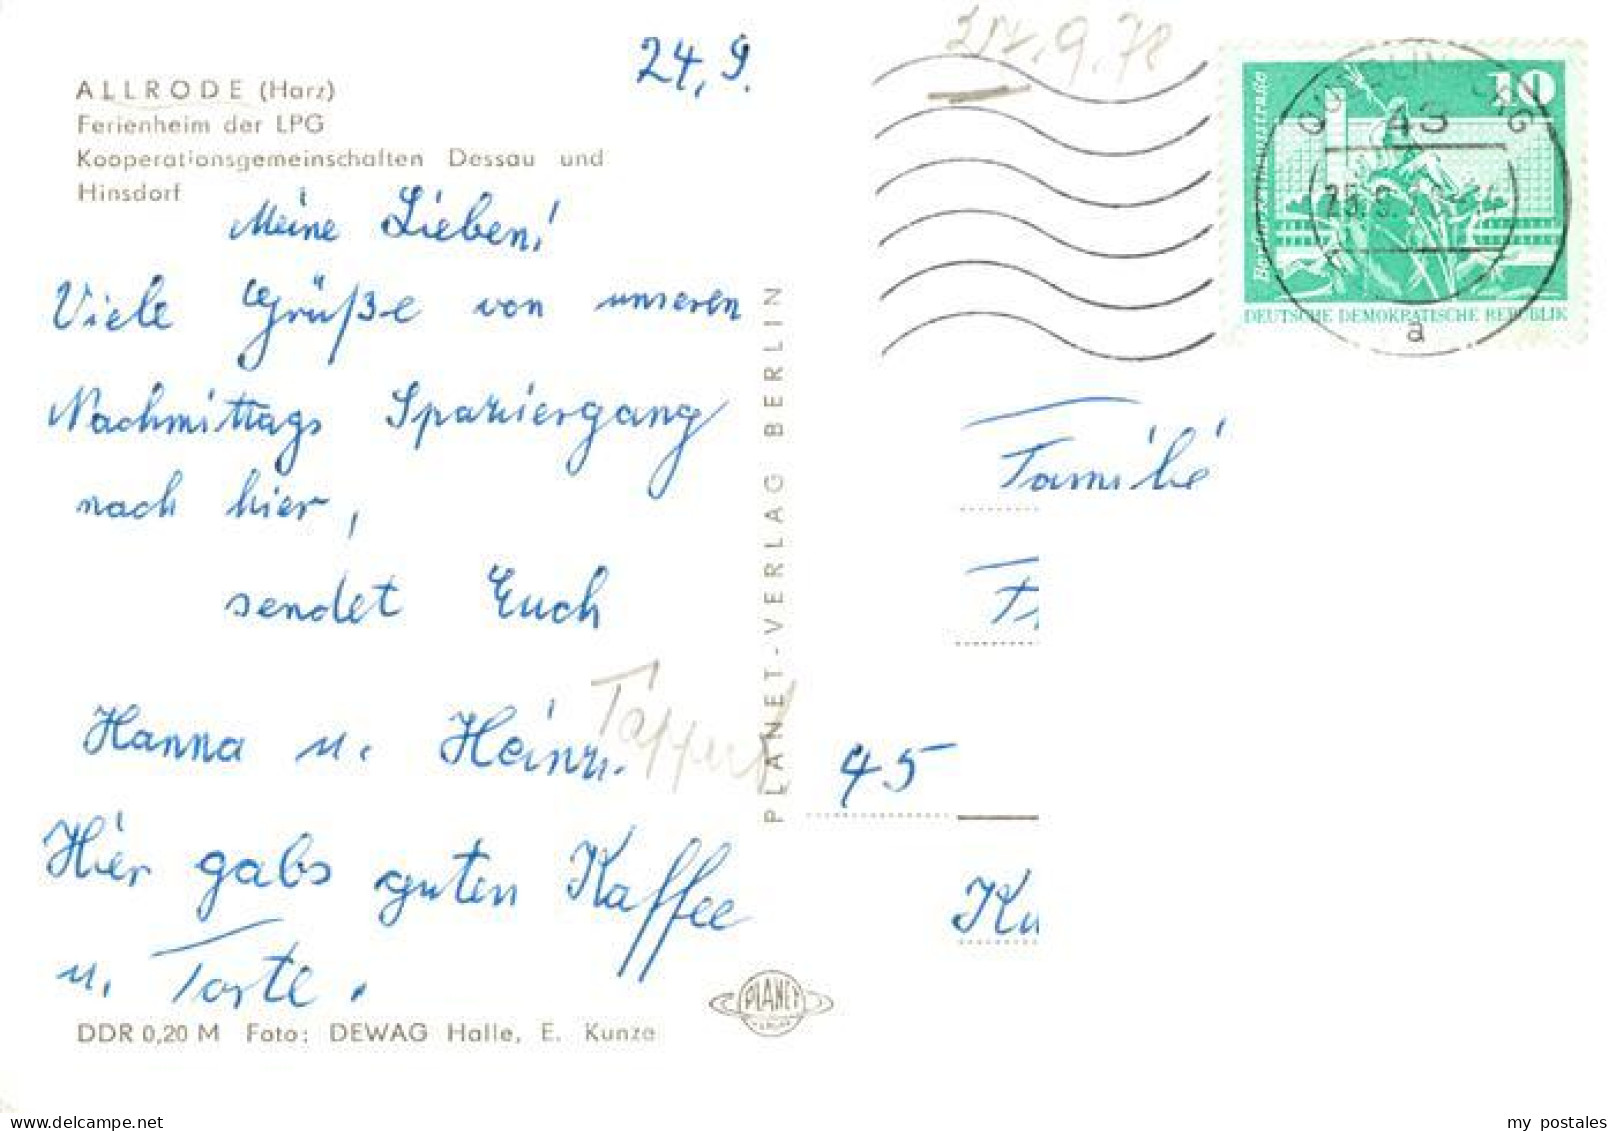 24.9.
ALLRODE (Harz)
Ferienheim der LPG
Kooperationsgemeinschaften Dessau und
Hinsdorf
Meine Lieben!
Viele Grüße von unseren
Nachmittags Spaziergang
nach hier,
sendet Euch
Hanna u. Heinz.
Tappert
Hier gabs guten Kaffee
u. Torte.
DDR 0,20 M Foto: DEWAG Halle, E. Kunze
PLANET-VERLAG BERLIN
PLANET
24.9.78
10
DEUTSCHE DEMOKRATISCHE REPUBLIK
QUEDLINBURG
43
a
Familie
45
Ku
my postales
delcampe.net